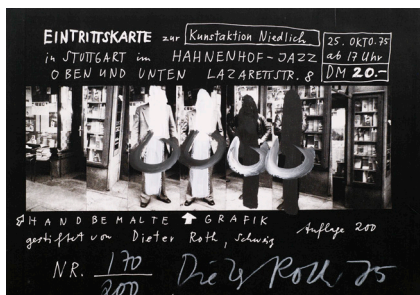 EINTRITTSKARTE zur Kunstaktion Niedlich
in STUTTGART im HAHNENHOF-JAZZ
OBEN UND UNTEN LAZARETTSTR. 8
25. OKTO. 75
ab 17 Uhr
DM 20.-
HANDBEMALTE GRAFIK
gestiftet von Dieter Roth,
Auflage 200
NR. 170
200
Dieter Roth 75